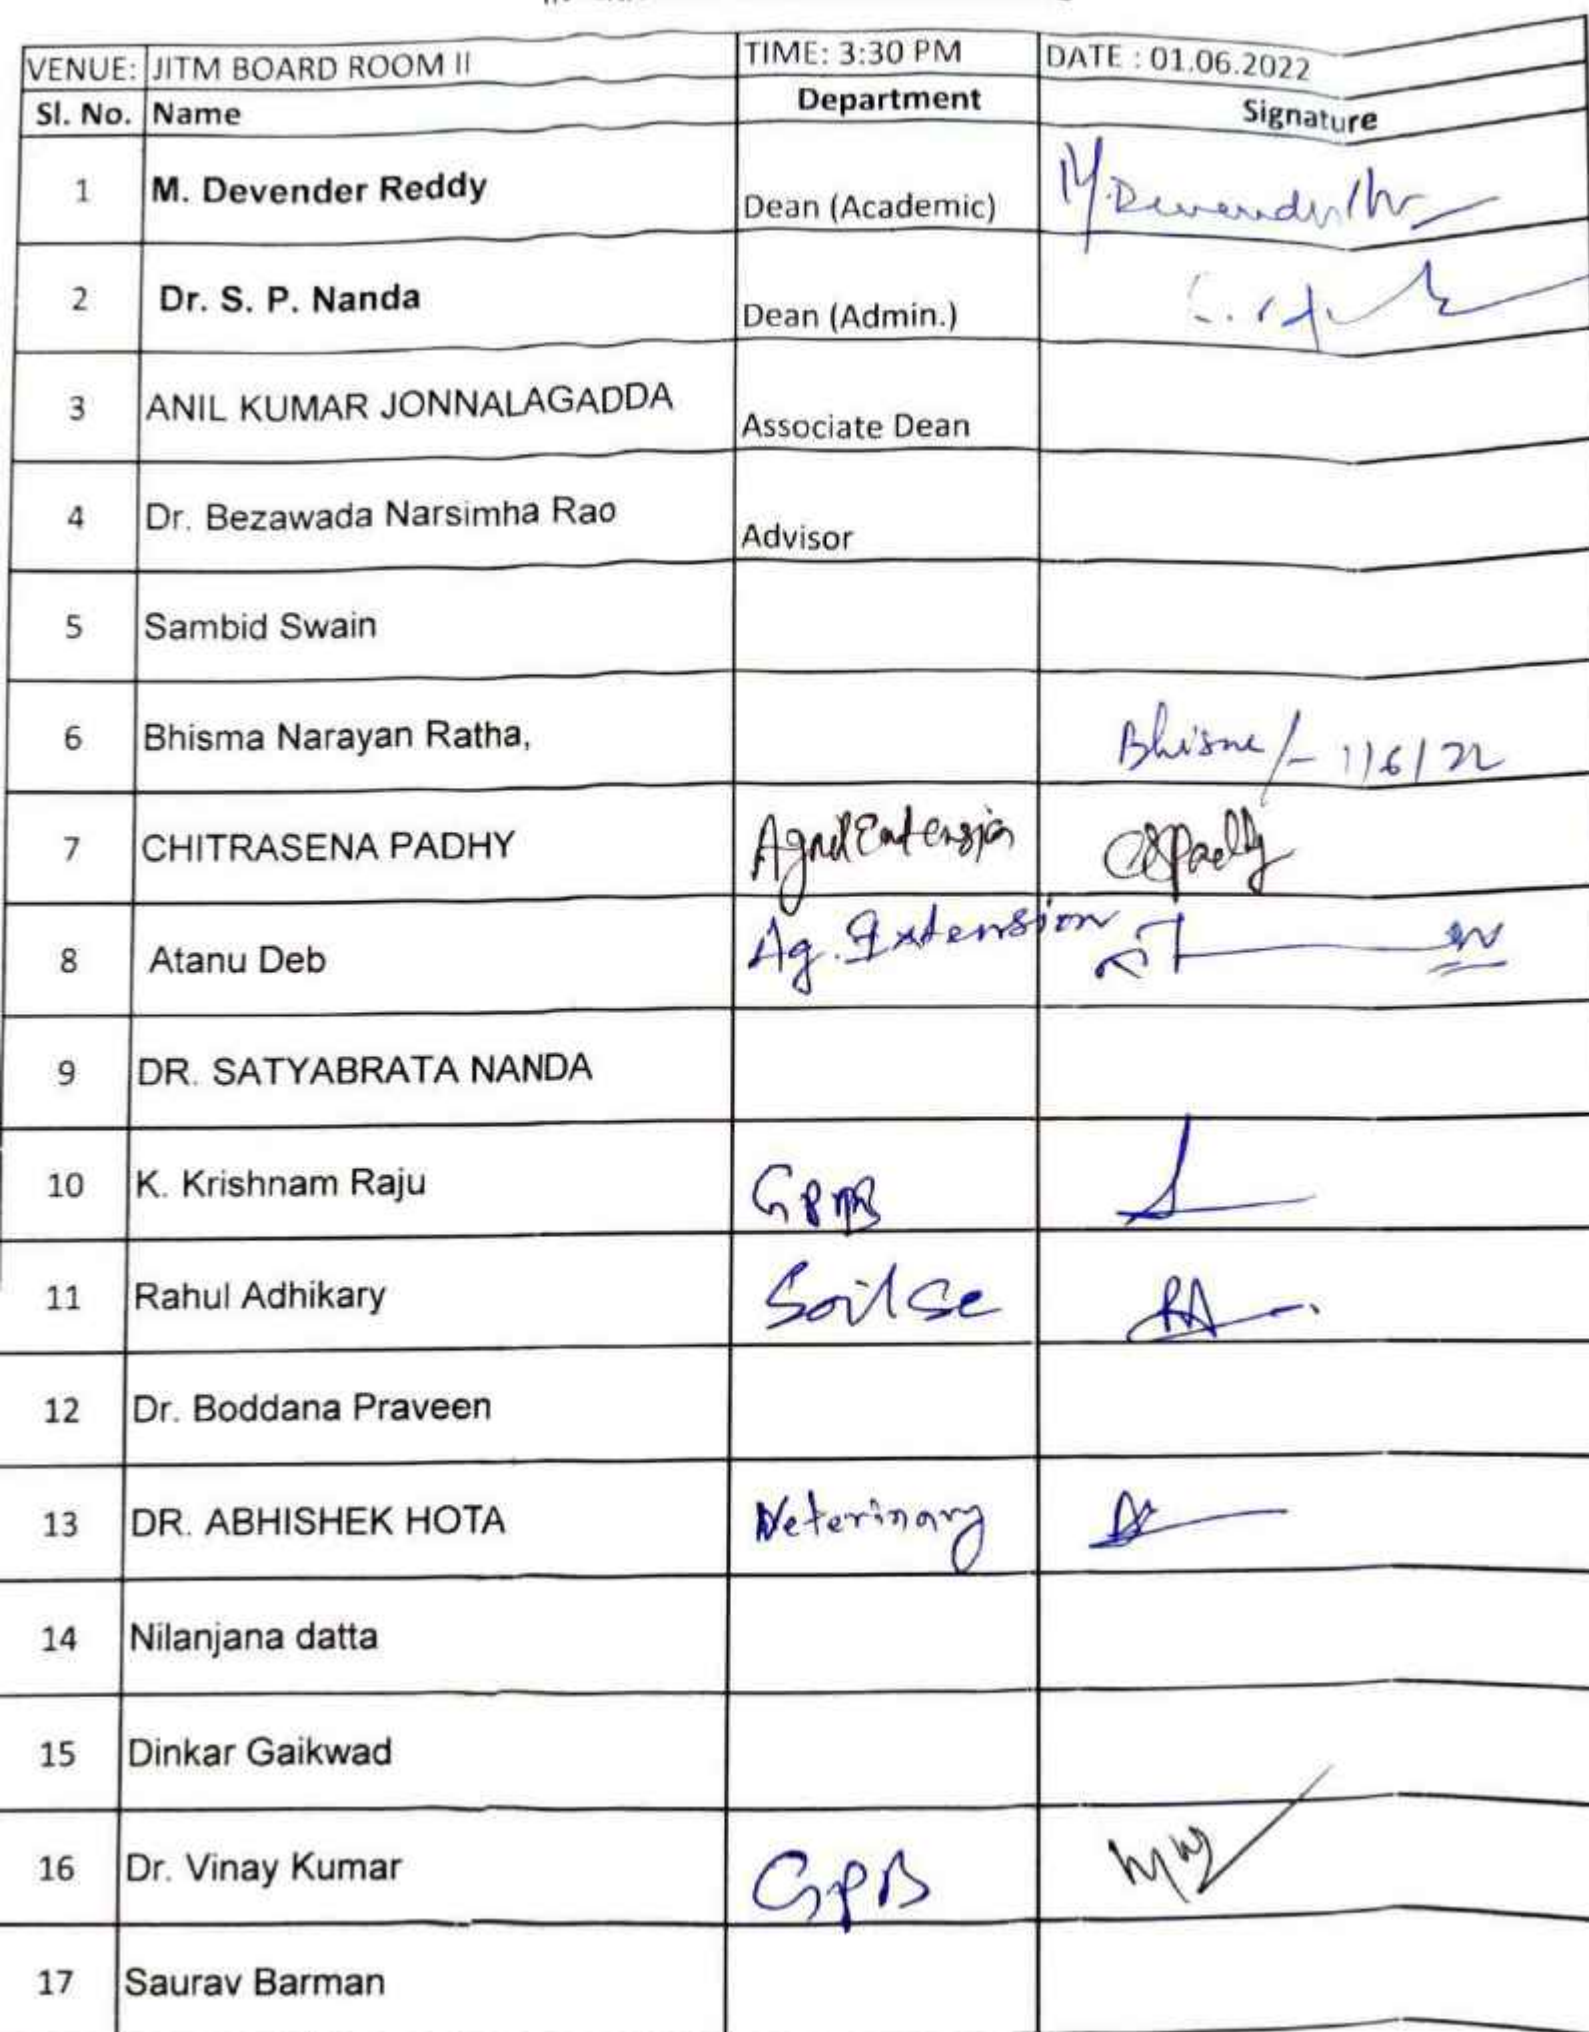 VENUE: JITM BOARD ROOM II TIME: 3:30 PM DATE : 01.06.2022
Sl. No. Name Department Signature
1 M. Devender Reddy Dean (Academic) M. Devender
2 Dr. S. P. Nanda Dean (Admin.)
3 ANIL KUMAR JONNALAGADDA Associate Dean
4 Dr. Bezawada Narsimha Rao Advisor
5 Sambid Swain
6 Bhisma Narayan Ratha, Bhisma/- 1/6/22
7 CHITRASENA PADHY Agril Extension CSPadhy
8 Atanu Deb Ag. Extension
9 DR. SATYABRATA NANDA
10 K. Krishnam Raju GPB
11 Rahul Adhikary Soil Sc RA
12 Dr. Boddana Praveen
13 DR. ABHISHEK HOTA Veterinary
14 Nilanjana datta
15 Dinkar Gaikwad
16 Dr. Vinay Kumar GPB
17 Saurav Barman